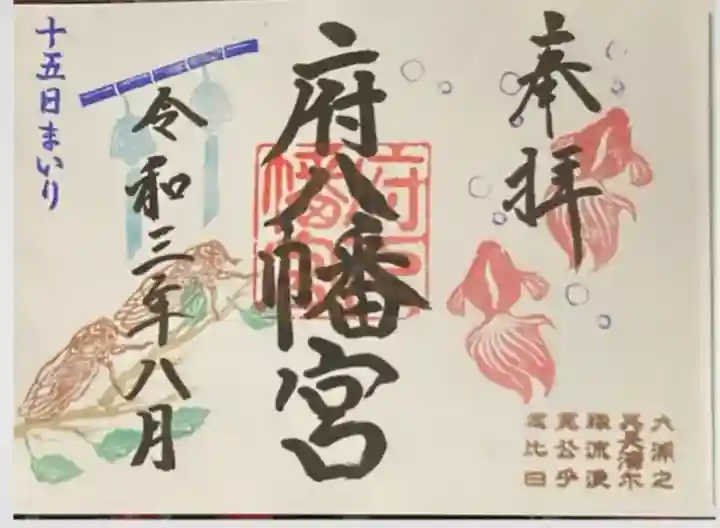 奉拝
府八幡宮
府八
幡宮
令和三年八月
十五日まいり
大浦之
其長濱尓
縁流浪
寛公乎
念比日